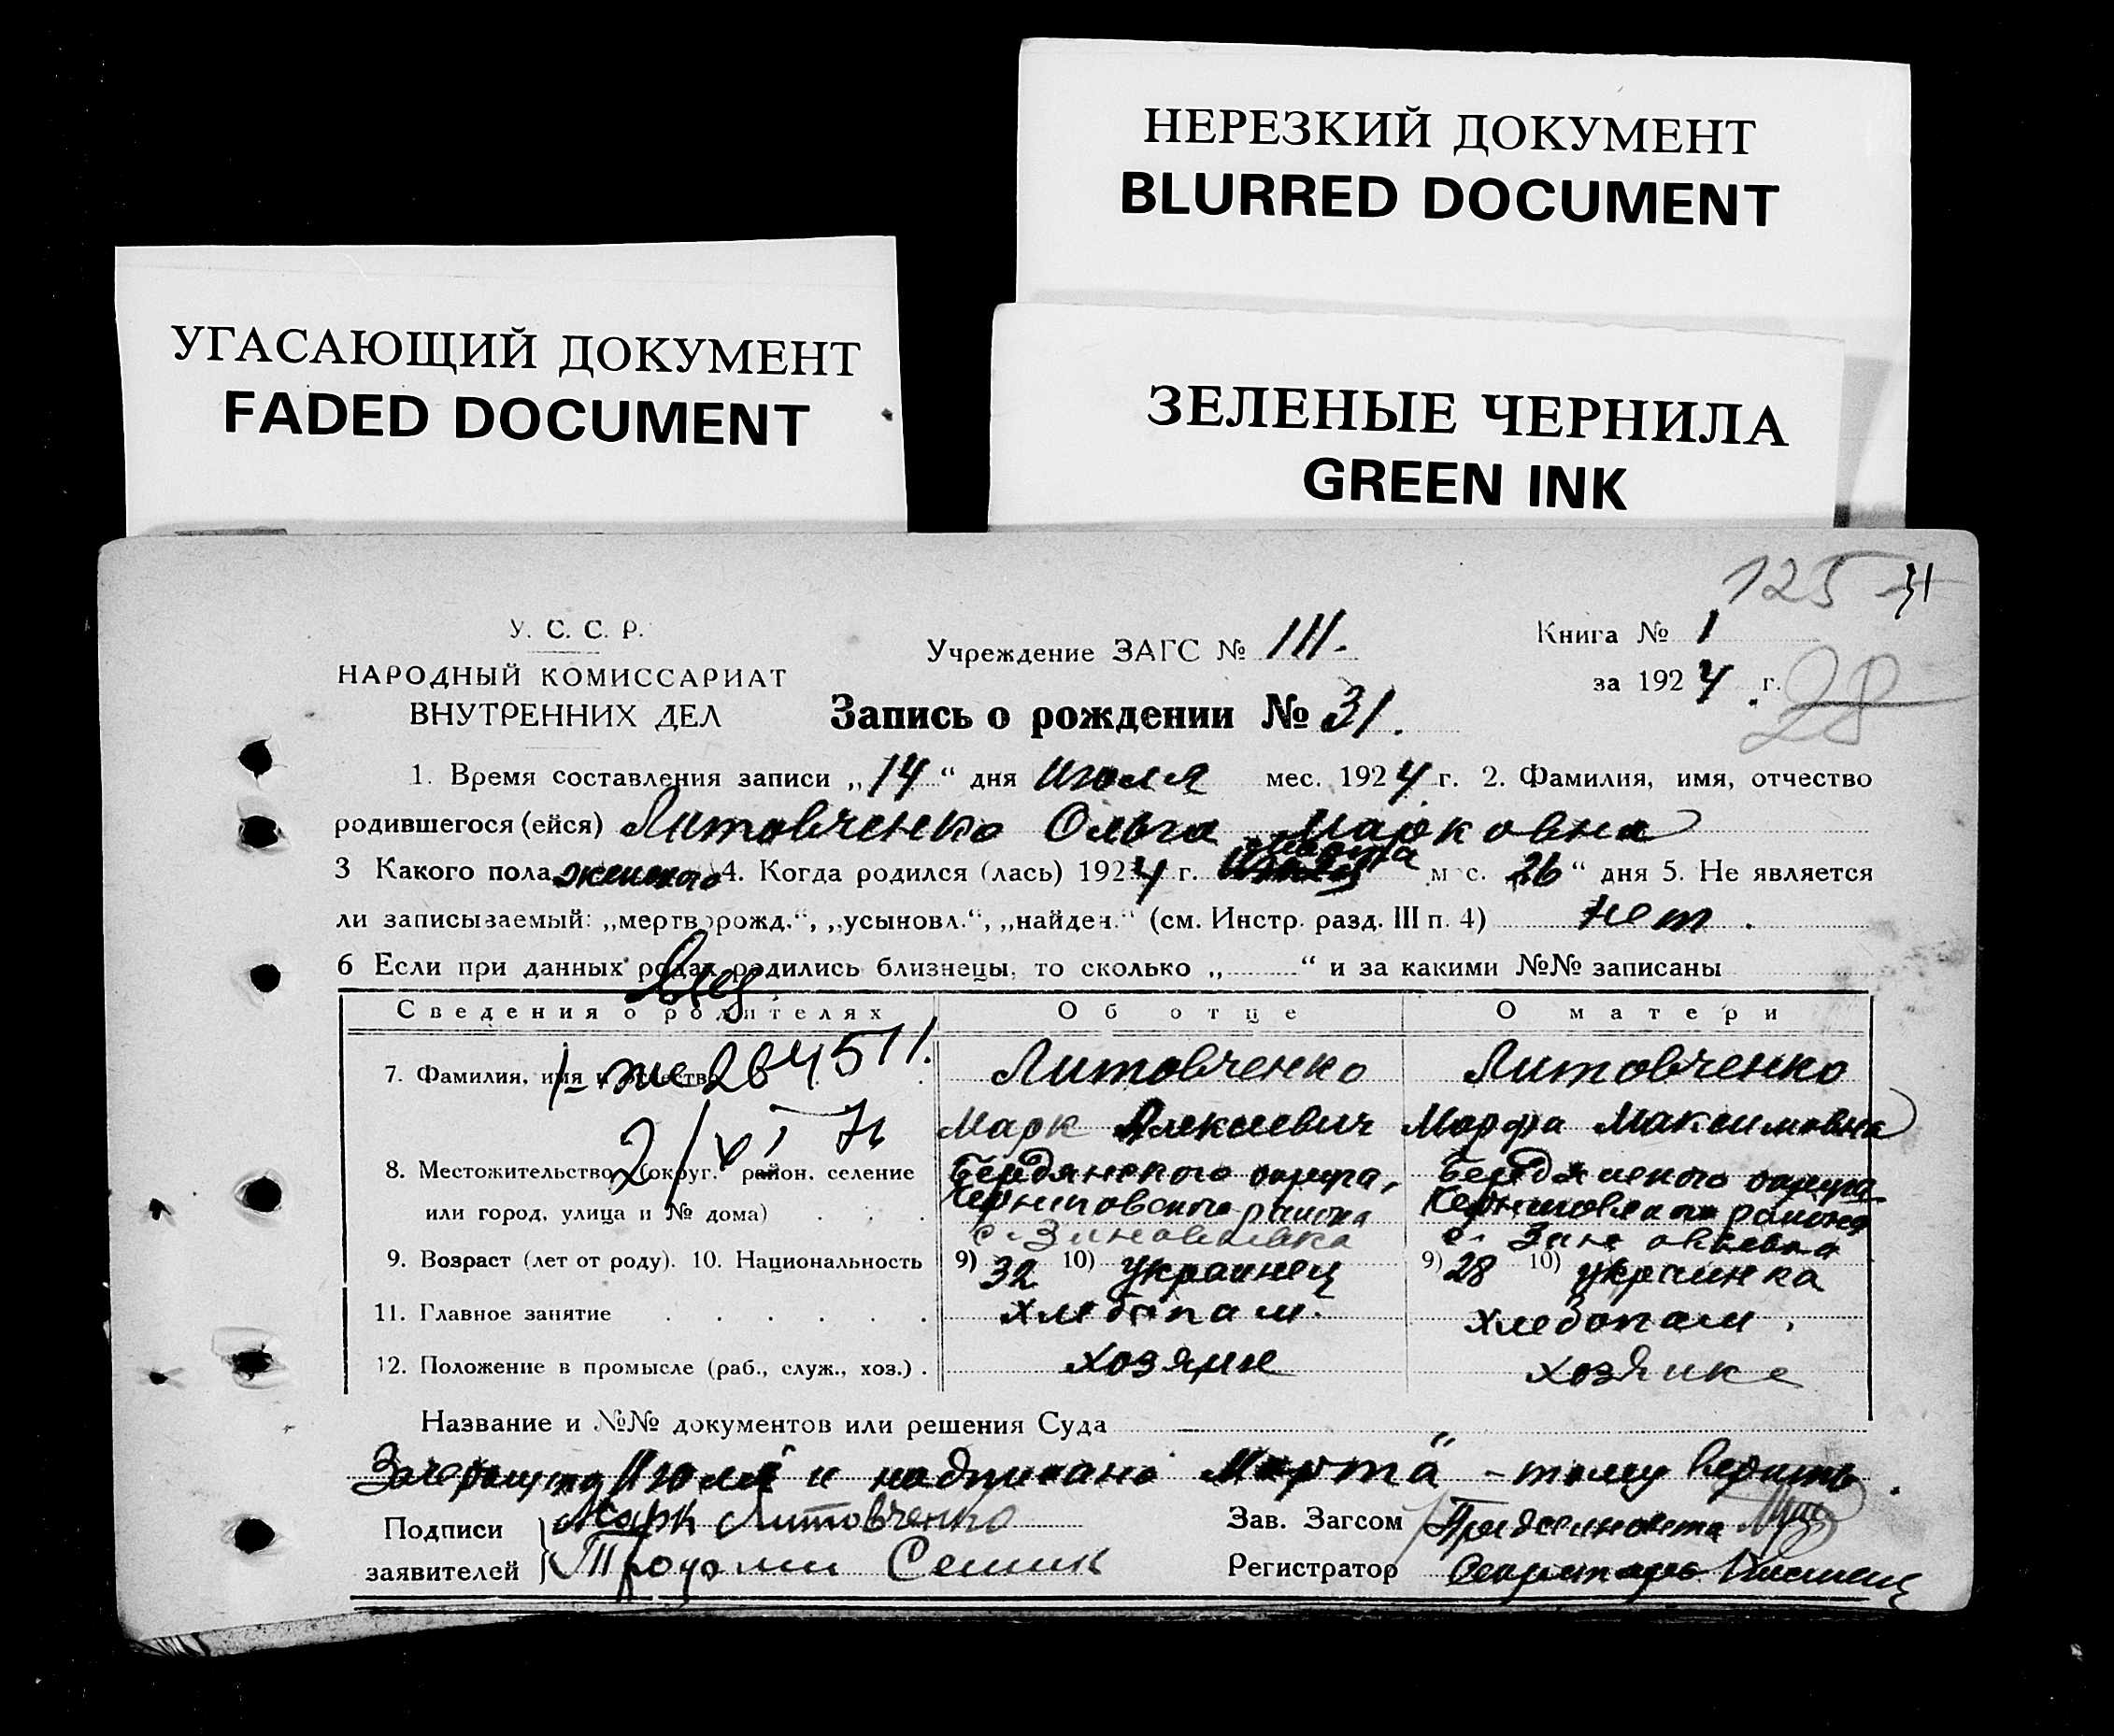 НЕРЕЗКИЙ ДОКУМЕНТ
BLURRED DOCUMENT
УГАСАЮЩИЙ ДОКУМЕНТ
FADED DOCUMENT
ЗЕЛЕНЫЕ ЧЕРНИЛА
GREEN INK
125 31
У. С. С. Р.
НАРОДНЫЙ КОМИССАРИАТ
ВНУТРЕННИХ ДЕЛ
Учреждение ЗАГС № III.
Книга № 1
за 1924 г.
28
Запись о рождении № 31.
1. Время составления записи „14“ дня июля мес. 1924 г. 2. Фамилия, имя, отчество
родившегося (ейся) Литовченко Ольга Марковна
марта
3 Какого пола женского 4. Когда родился (лась) 1924 г. м с. 26“ дня 5. Не является
ли записываемый: „мертворожд.“, „усыновл.“, „найден.“ (см. Инстр. разд. III п. 4) нет.
6 Если при данных родах родились близнецы, то сколько „ “ и за какими №№ записаны
Сведения о родителях Об отце О матери
7. Фамилия, имя и отчество Литовченко Литовченко
264511.
Марк Алексеевич Марфа Максимовна
2/VI
8. Местожительство (округ. район. селение Бердянского округа, Бердянского округа
или город, улица и № дома) Черниговского района Черниговского района
с. Зиновьевка с. Зиновьевка
9. Возраст (лет от роду). 10. Национальность 9) 32 10) украинец 9) 28 10) украинка
11. Главное занятие хлебопаш. хлебопаш.
12. Положение в промысле (раб., служ., хоз.) хозяин хозяйка
Название и №№ документов или решения Суда
Зачеркнуто „Июля“ и надписано „Марта“ – тому верить.
Подписи заявителей Марк Литовченко
Трофим Семик
Зав. Загсом Предсельсовета
Регистратор Секретарь